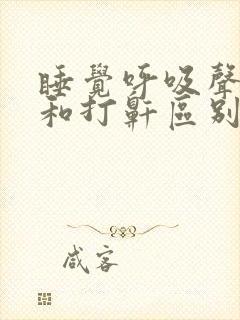 睡覺呼吸聲
和打鼾區別
咸客